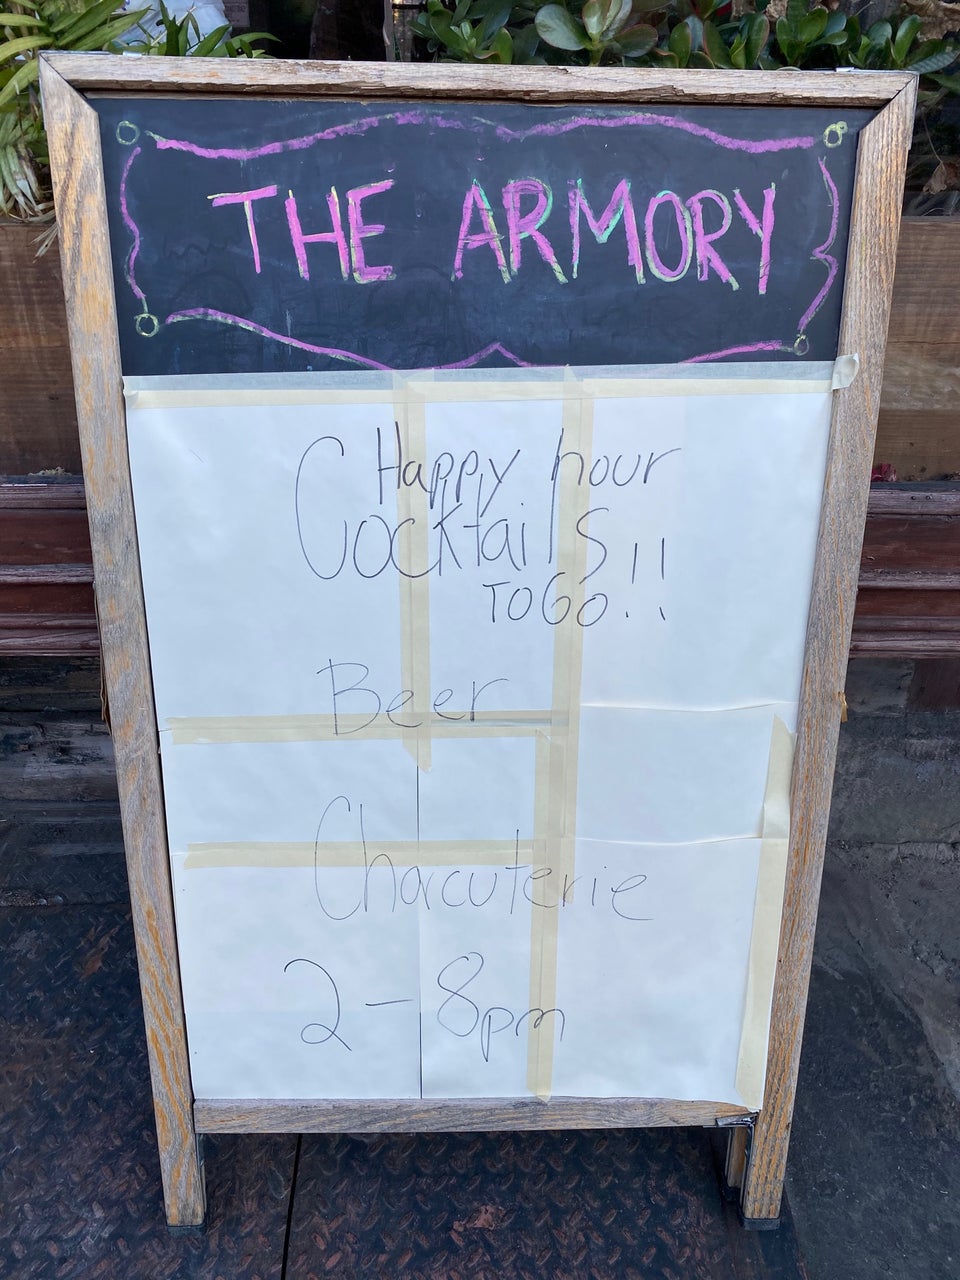 THE ARMORY
Happy hour
Cocktails
TO GO!!
Beer
Charcuterie
2-8pm